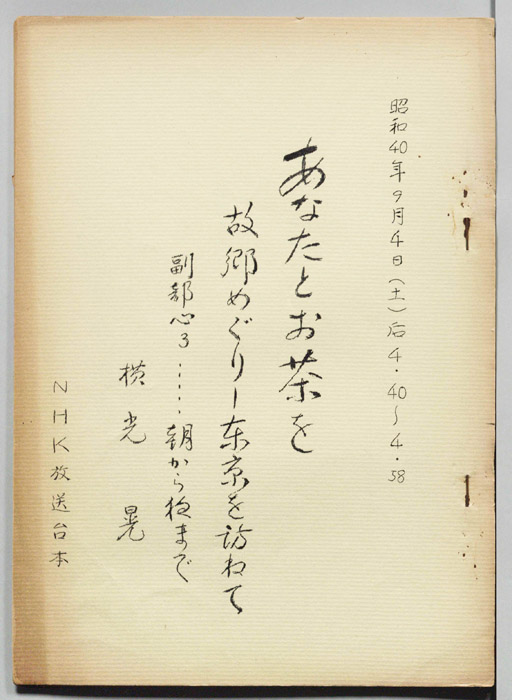 昭和40年9月4日(土)后4・40〜4・58
あなたとお茶を
故郷めぐりー東京を訪ねて
副都心3……朝から夜まで
横光 晃
NHK放送台本